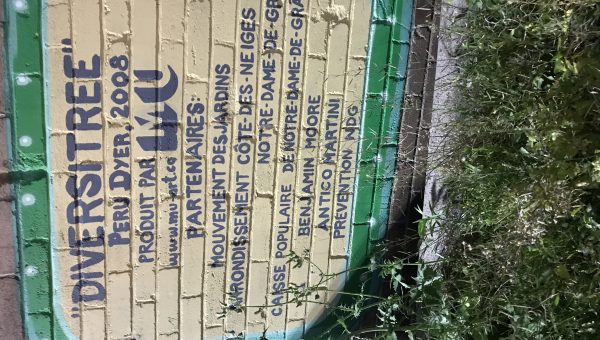 "DIVERSITREE"
PERU DYER, 2008
PRODUIT PAR MU
www.mu-art.co
PARTENAIRES:
MOUVEMENT DESJARDINS
ARRONDISSEMENT CÔTE-DES-NEIGES
NOTRE-DAME-DE-GR
CAISSE POPULAIRE DE NOTRE-DAME-DE-GRA
BENJAMIN MOORE
ANTICO MARTINI
PREVENTION NDG